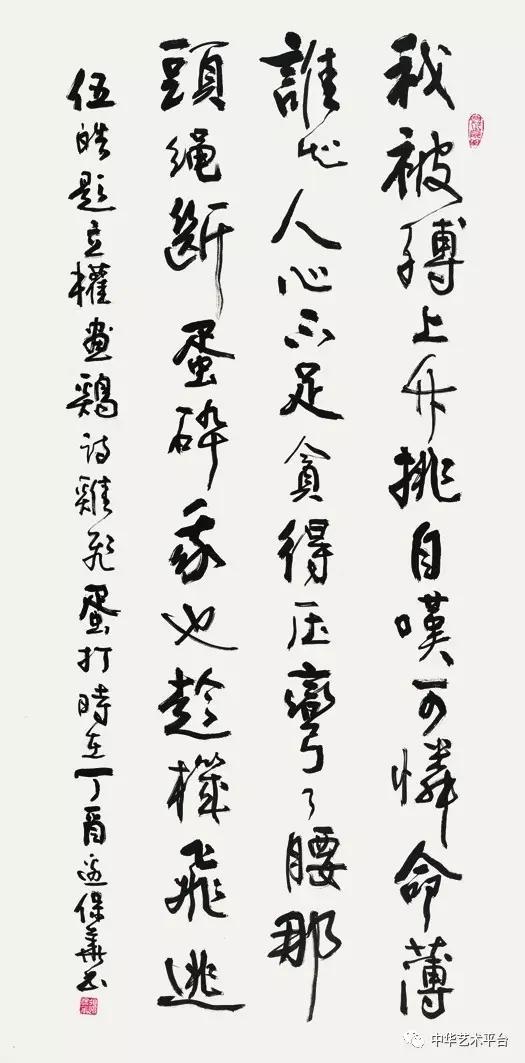 我被縛上升挑自嘆可憐命薄
誰人心不足貪得压彎了腰那
頭繩斷蛋碎我也趁機飛逃
伍皓題立權畫鷄詩雞飛蛋打時在丁酉保華书
中华艺术平台